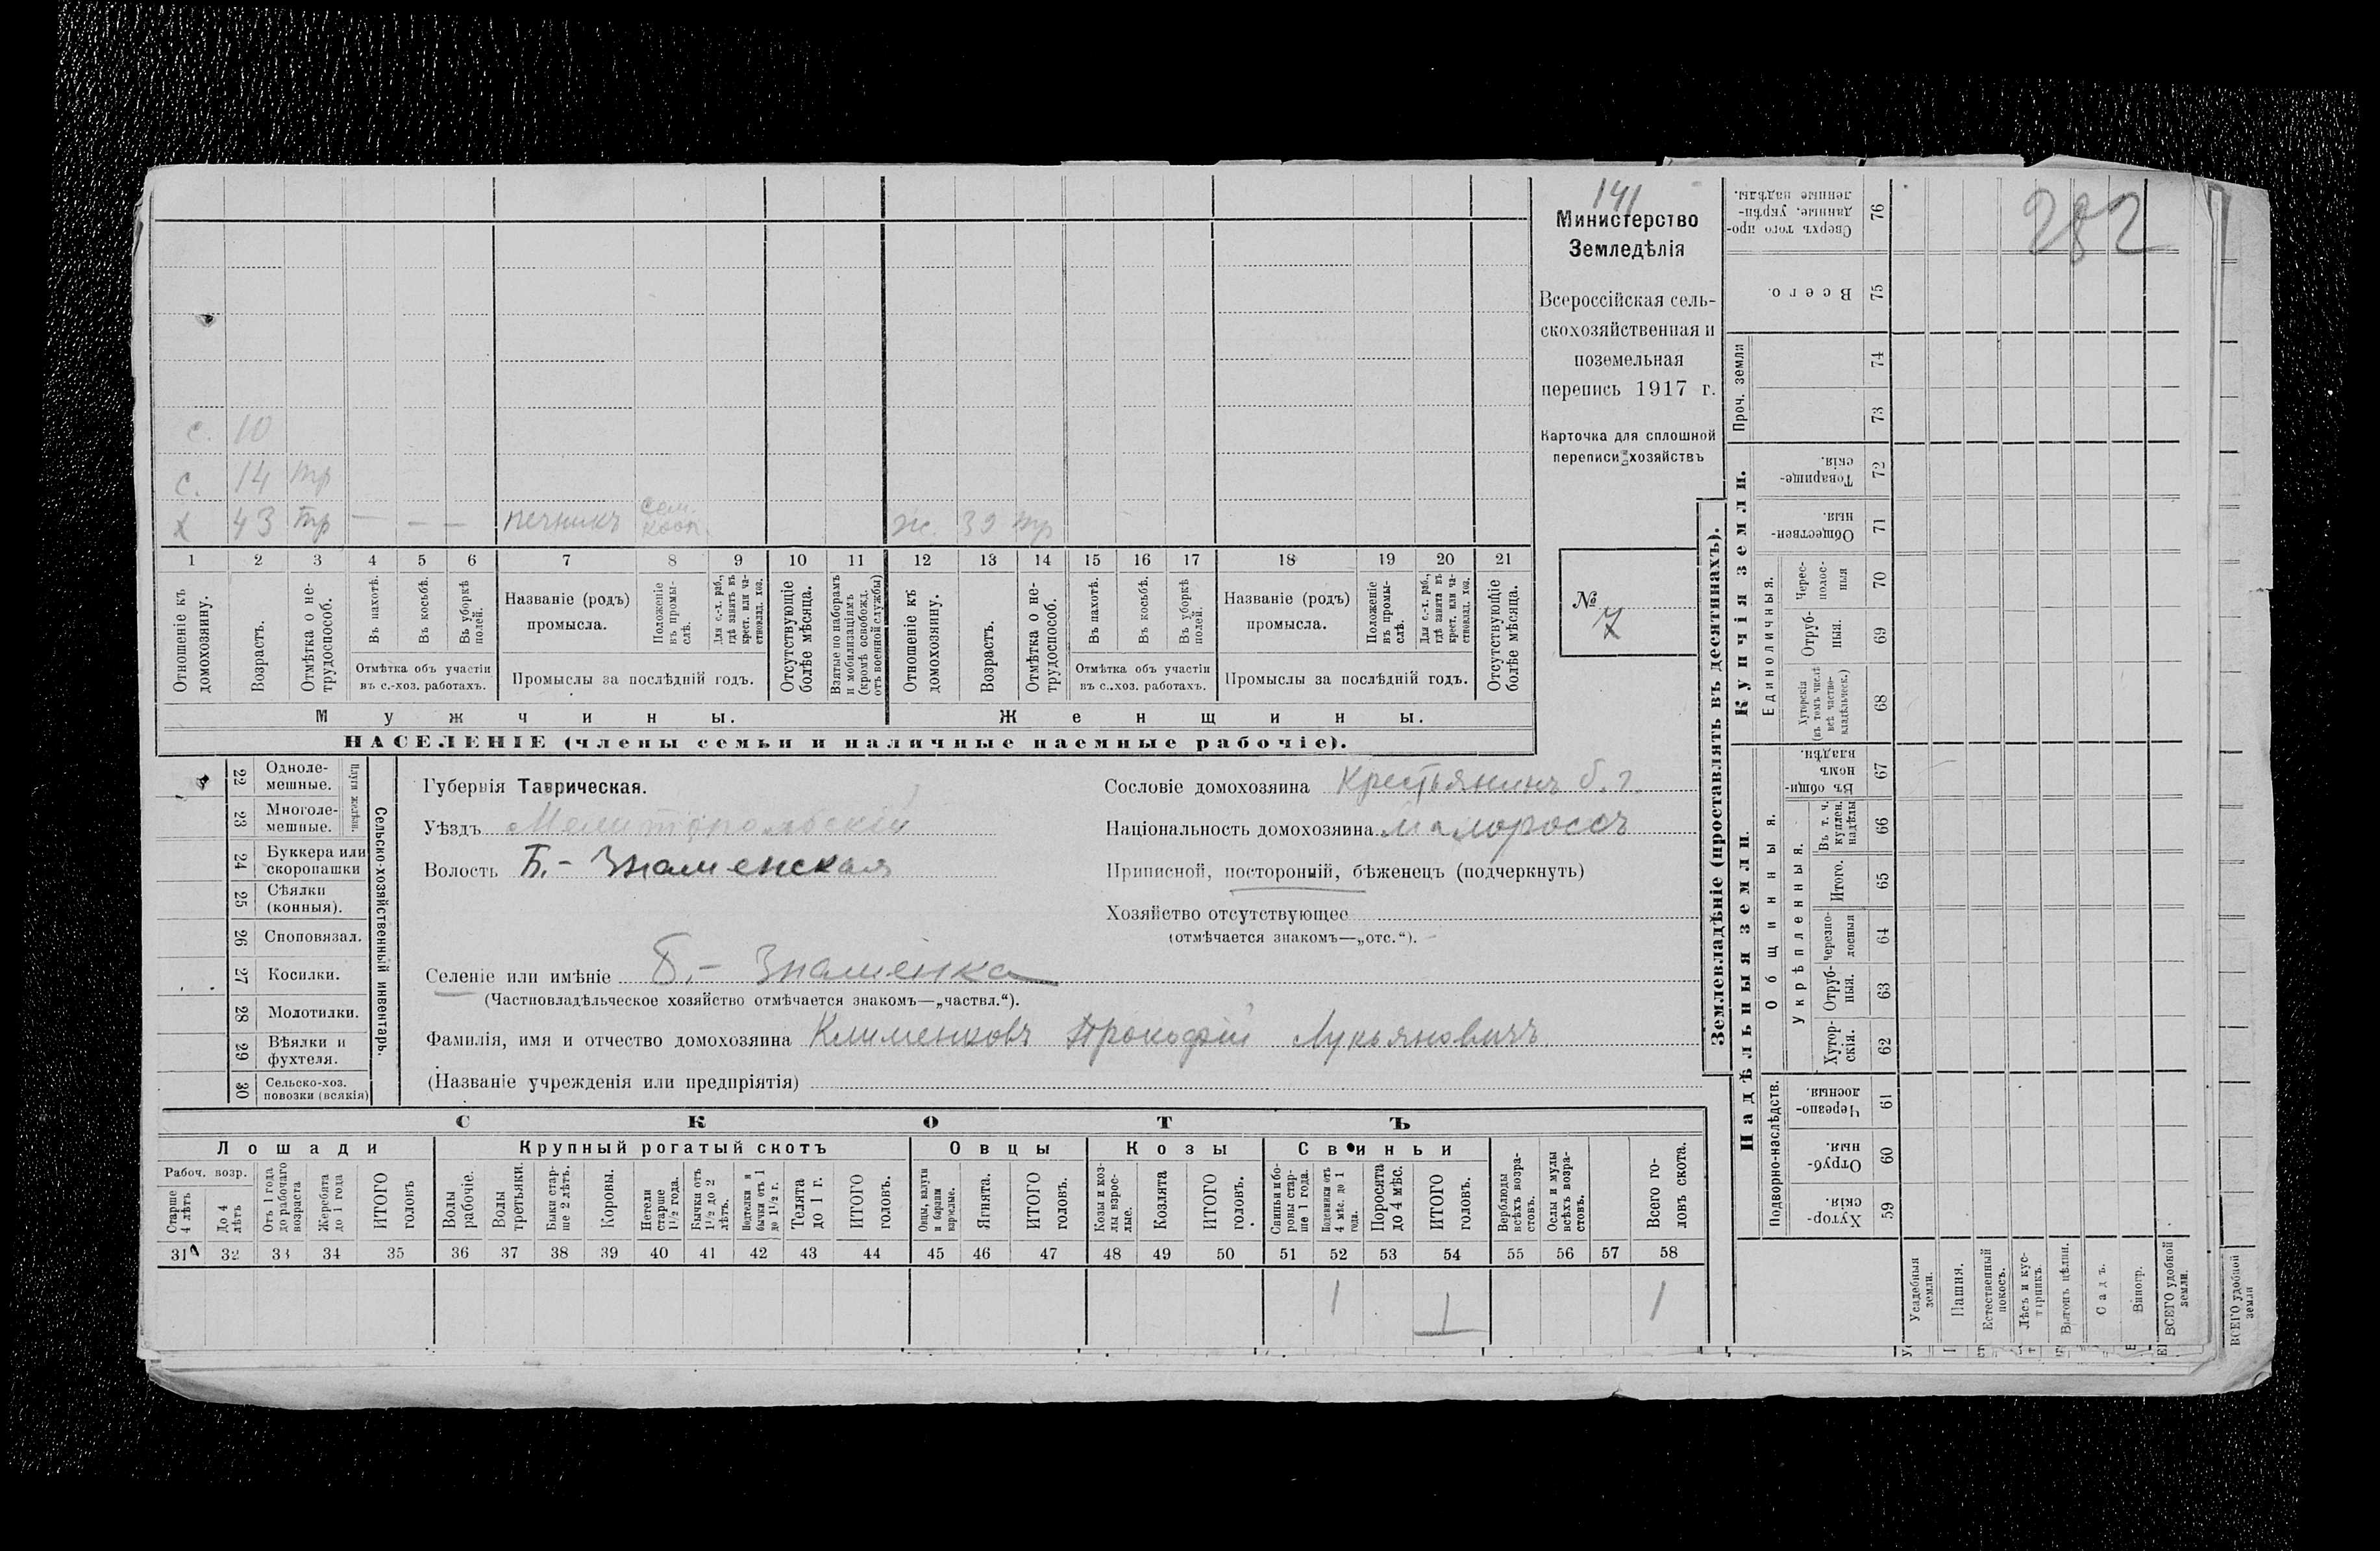 141
282
Министерство
Земледѣлія
Всероссійская сель-
скохозяйственная и
поземельная
перепись 1917 г.
Карточка для сплошной
переписи хозяйствъ
№ 7
с. 10
с. 14 тр
х 43 тр — — — печникъ сем. ж. 39 тр
1 2 3 4 5 6 7 8 9 10 11 12 13 14 15 16 17 18 19 20 21
Отношеніе къ домохозяину.
Возрастъ.
Отмѣтка о не-трудоспособ.
Въ пахотѣ.
Въ косьбѣ.
Въ уборкѣ полей.
Отмѣтка объ участіи
въ с.-хоз. работахъ.
Названіе (родъ)
промысла.
Положеніе въ промы-слѣ.
Для с.-х. раб., гдѣ занятъ въ крест. или ча-стновлад. хоз.
Промыслы за послѣдній годъ.
Отсутствующіе болѣе мѣсяца.
Взятые по наборамъ и мобилизаціямъ (кромѣ освобожд. отъ военной службы)
Отношеніе къ домохозяину.
Возрастъ.
Отмѣтка о не-трудоспособ.
Въ пахотѣ.
Въ косьбѣ.
Въ уборкѣ полей.
Отмѣтка объ участіи
въ с..хоз. работахъ.
Названіе (родъ)
промысла.
Положеніе въ промы-слѣ.
Для с.-х. раб., гдѣ занята въ крест. или ча-стновлад. хоз.
Промыслы за послѣдній годъ.
Отсутствующіе болѣе мѣсяца.
Мужчины.
Женщины.
НАСЕЛЕНІЕ (члены семьи и наличные наемные рабочіе).
Сельско-хозяйственный инвентарь.
Плуги желѣзн.
22 Одноле-
мешные.
23 Многоле-
мешные.
24 Буккера или
скоропашки
25 Сѣялки
(конныя).
26 Сноповязал.
27 Косилки.
28 Молотилки.
29 Вѣялки и
фухтеля.
30 Сельско-хоз.
повозки (всякія)
Губернія Таврическая.
Уѣздъ Мелитопольскій
Волость Б.- Знаменская
Селеніе или имѣніе Б.- Знаменка
(Частновладѣльческое хозяйство отмѣчается знакомъ—„частвл.“).
Фамилія, имя и отчество домохозяина Клименковъ Прокофій Лукьяновичъ
(Названіе учрежденія или предпріятія)
Сословіе домохозяина крестьянинъ б. г.
Національность домохозяина малороссъ
Приписной, посторонній, бѣженецъ (подчеркнуть)
Хозяйство отсутствующее
(отмѣчается знакомъ—„отс.“).
СКОТЪ
Лошади
Крупный рогатый скотъ
Овцы
Козы
Свиньи
Рабоч. возр.
Старше 4 лѣтъ
До 4 лѣтъ
Отъ 1 года до рабочаго возраста
Жеребята до 1 года
ИТОГО головъ
Волы рабочіе.
Волы третьяки.
Быки стар-ше 2 лѣтъ.
Коровы.
Нетели старше 1½ года.
Бычки отъ 1½ до 2 лѣтъ.
Подтелки и бычки отъ 1 до 1½ г.
Телята до 1 г.
ИТОГО головъ.
Овцы, валухи и бараны взрослые.
Ягнята.
ИТОГО головъ.
Козы и коз-лы взрос-лые.
Козлята
ИТОГО головъ.
Свиньи и бо-ровы стар-ше 1 года.
Подсвинки отъ 4 мѣс. до 1 года.
Поросята до 4 мѣс.
ИТОГО головъ.
Верблюды всѣхъ возра-стовъ.
Ослы и мулы всѣхъ возра-стовъ.
Всего го-ловъ скота.
31 32 33 34 35 36 37 38 39 40 41 42 43 44 45 46 47 48 49 50 51 52 53 54 55 56 57 58
1 1 1
Землевладѣніе (проставлять въ десятинахъ).
Купчія земли.
Надѣльныя земли
Проч. земли
Единоличныя.
Общинныя.
Укрѣпленныя.
Подворно-наслѣдств.
Сверхъ того про-данные, укрѣп-ленные надѣлы. 76
Всего. 75
74
73
Товарище-скія. 72
Обществен-ныя. 71
Черес-полос-ныя 70
Отруб-ныя. 69
Хуторскія (въ томъ числѣ всѣ частно-владѣльческ.) 68
Въ общин-номъ владѣн. 67
Въ т. ч. куплен. надѣлы 66
Итого. 65
Черезпо-лосныя 64
Отруб-ныя. 63
Хутор-скія. 62
Черезпо-лосныя 61
Отруб-ныя. 60
Хутор-скія. 59
Усадебныя земли.
Пашня.
Естественный покосъ.
Лѣсъ и кус-тарникъ.
Выгонъ цѣлин.
Садъ.
Виногр.
ВСЕГО удобной земли.
ВСЕГО удобной земли